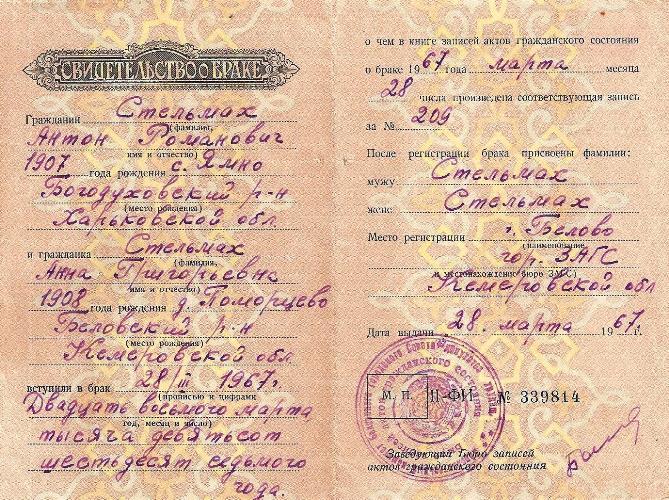 СВИДЕТЕЛЬСТВО О БРАКЕ
Гражданин Стельмах
(фамилия,
Антон Романович
имя и отчество)
1907 года рождения с. Ямно
Богодуховский р-н
(место рождения)
Харьковской обл.
и гражданка Стельмах
(фамилия,
Анна Григорьевна
имя и отчество)
1908 года рождения д. Поморцево
Беловский р-н
(место рождения)
Кемеровской обл.
вступили в брак 28/III 1967г.
(прописью и цифрами
Двадцать восьмого марта
год, месяц и число)
тысяча девятьсот
шестьдесят седьмого
года.
о чем в книге записей актов гражданского состояния
о браке 1967 года марта месяца
28 числа произведена соответствующая запись
за № 209
После регистрации брака присвоены фамилии:
мужу Стельмах
жене Стельмах
Место регистрации г. Белово
(наименование
гор. ЗАГС
и местонахождение бюро ЗАГС)
Кемеровской обл
Дата выдачи 28. марта 1967г.
М. П. II-ФИ № 339814
Заведующий Бюро записей
актов гражданского состояния